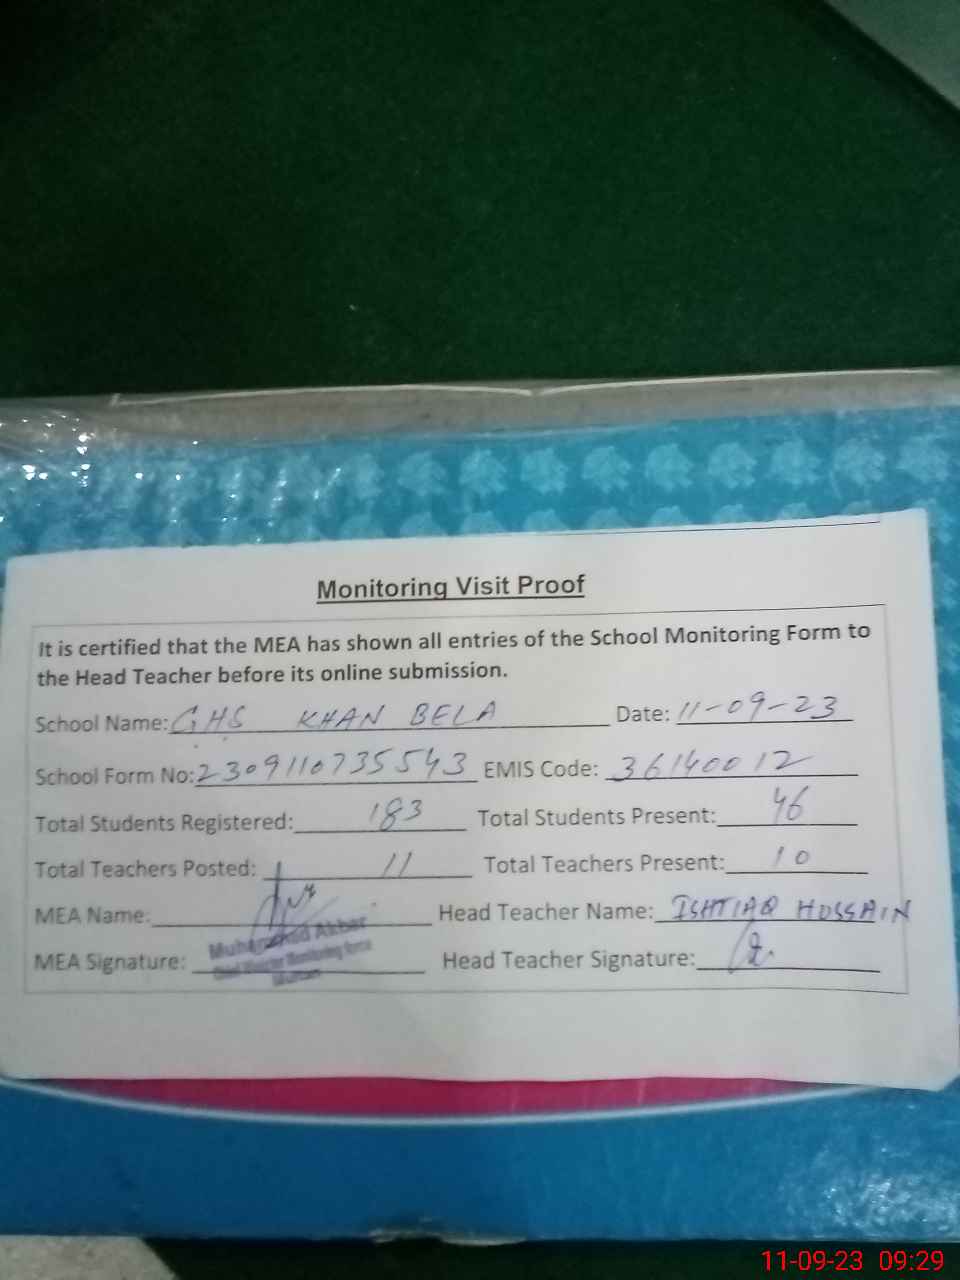 Monitoring Visit Proof
It is certified that the MEA has shown all entries of the School Monitoring Form to
the Head Teacher before its online submission.
School Name: GHS KHAN BELA Date: 11-09-23
School Form No: 2309110735543 EMIS Code: 36140012
Total Students Registered: 183 Total Students Present: 46
Total Teachers Posted: 11 Total Teachers Present: 10
MEA Name: Head Teacher Name: ISHTIAQ HUSSAIN
Muhammad Akbar
MEA Signature: Head Teacher Signature:
11-09-23 09:29